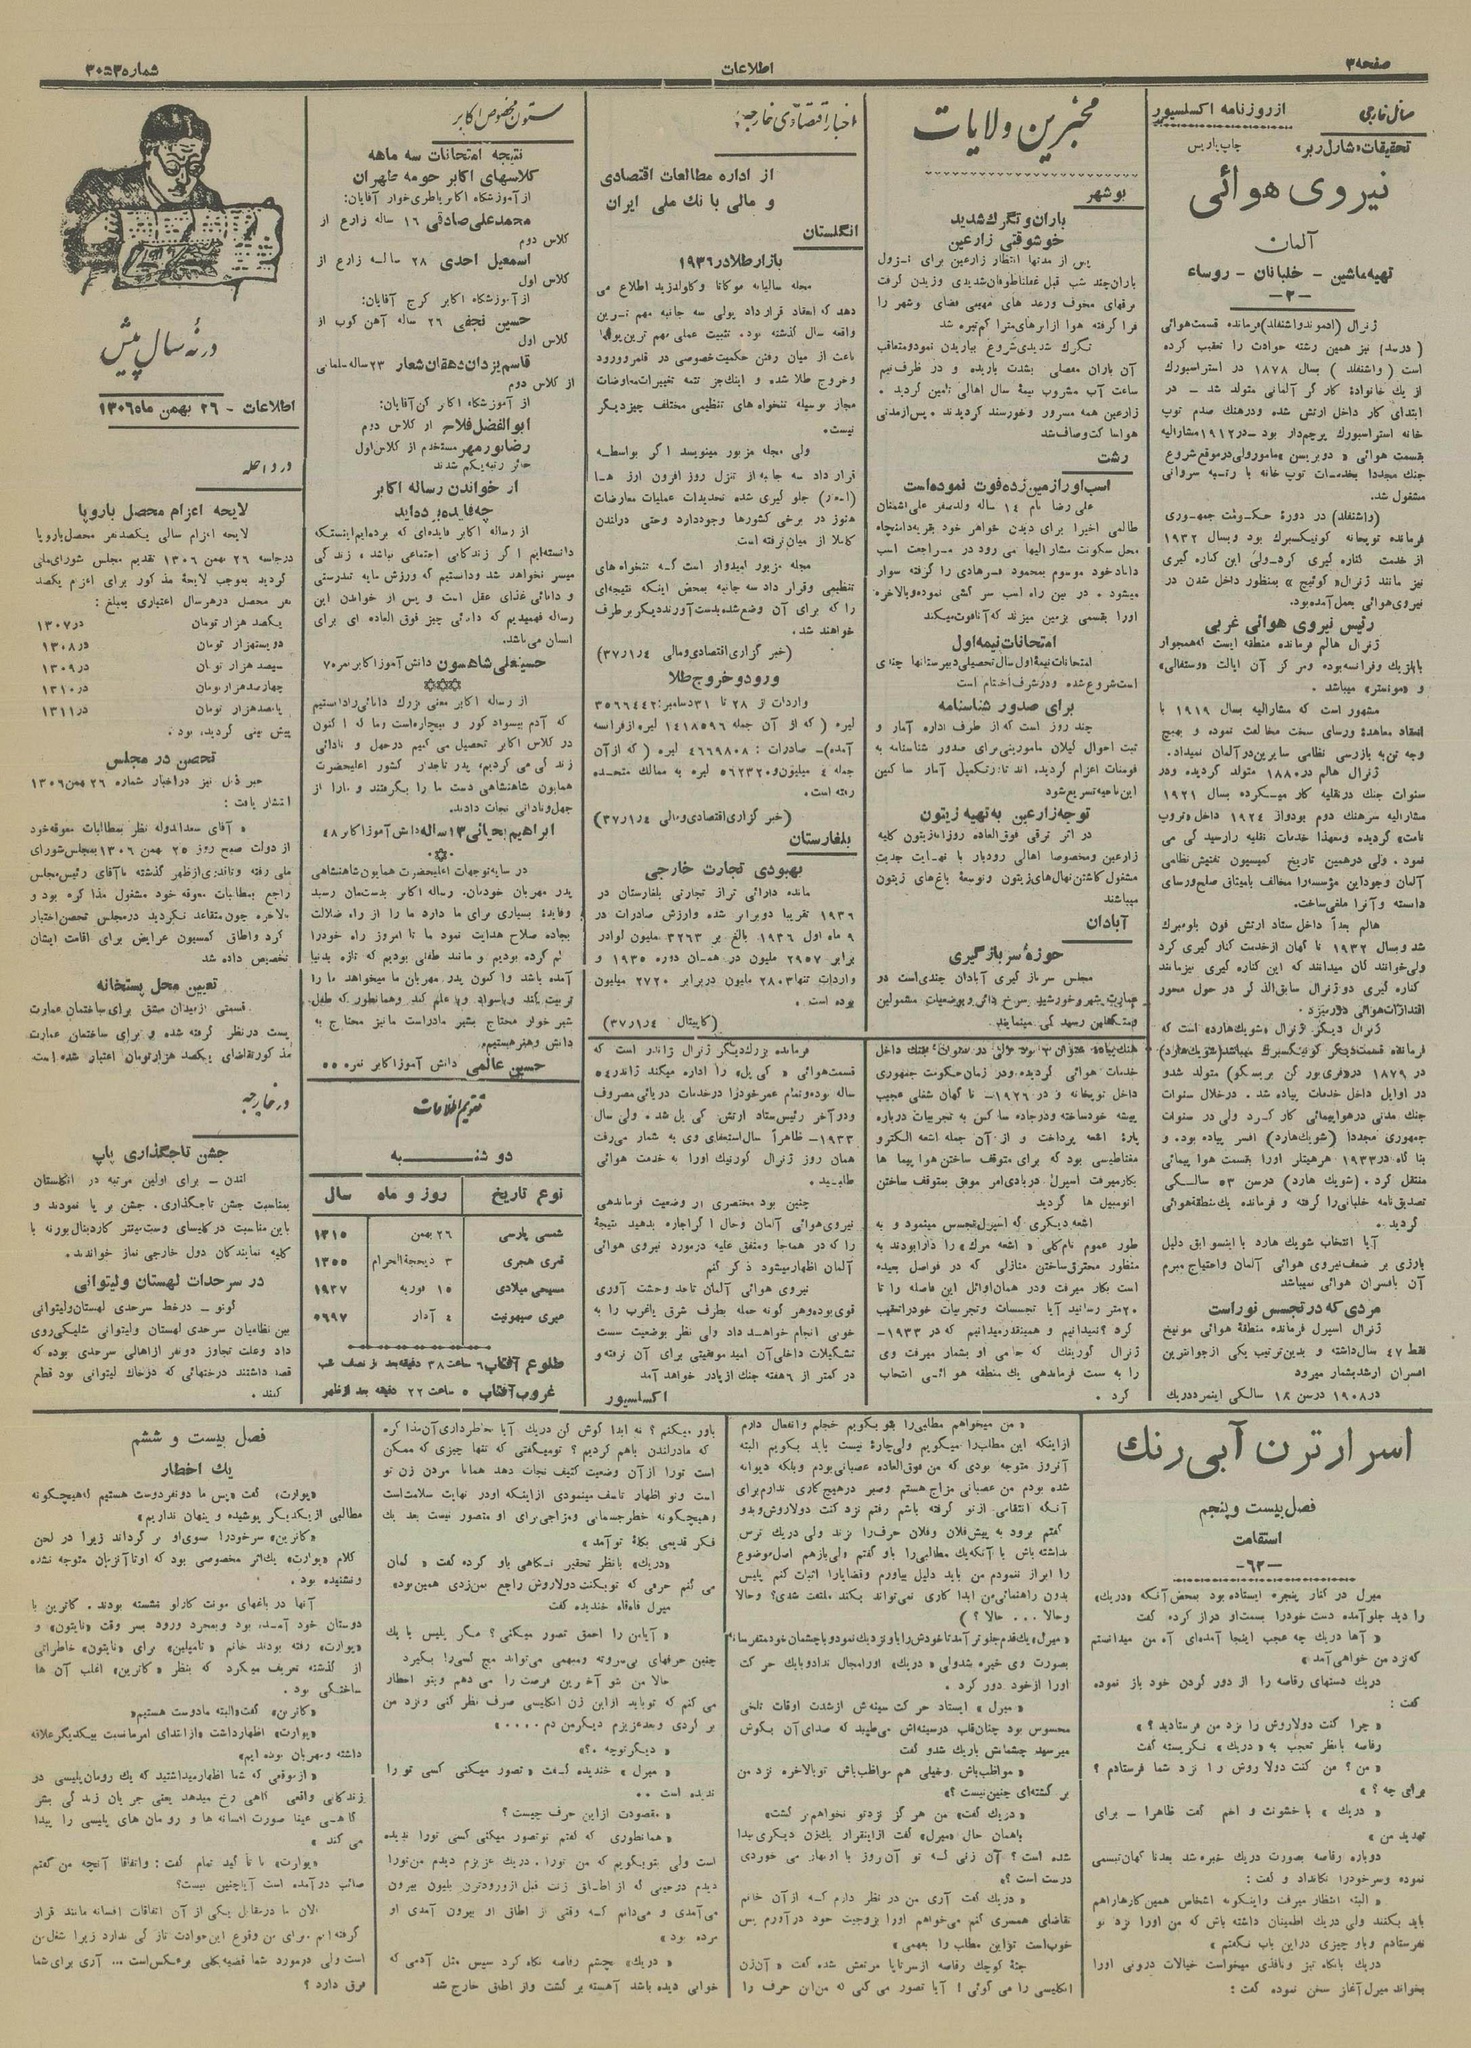 صفحه ۳
اطلاعات
شماره ۳۰۵۳
مسائل خارجی
از روزنامه اکسلسیور
چاپ پاریس
تحقیقات «شارل ربر»
نیروی هوائی
آلمان
تهیه ماشین - خلبانان - روساء
-۲-
ژنرال (ادموند واشنفلد) فرمانده قسمت هوائی
( درسد) نیز همین رشته حوادث را تعقیب کرده
است ( واشنفلد ) بسال ۱۸۷۸ در استراسبورک
از یك خانوادهٔ کار گر آلمانی متولد شد - در
ابتدای کار داخل ارتش شده ودرهنك صدم توپ
خانه استراسبورك پرچم‌دار بود - در ۱۹۱۲ مشارالیه
بقسمت هوائی « دوبریسن » مامور ولی درموقع شروع
جنك مجددا بخدمات توپ خانه با رتبه سروانی
مشغول شد.
(واشنفلد) در دورهٔ حکومت جمهوری
فرمانده توپخانه کونیکسبرك بود وبسال ۱۹۳۲
از خدمت کناره گیری کرد-ولی این کناره گیری
نیز مانند ژنرال« کوئیچ » بمنظور داخل شدن در
نیروی هوائی بعمل آمده بود.
رئیس نیروی هوائی غربی
ژنرال هالم فرمانده منطقه ایست که همجوار
بابلژیك وفرانسه بوده و مر کز آن ایالت «وستفالی»
و «مونستر» میباشد .
مشهور است که مشارالیه بسال ۱۹۱۹ با
انعقاد معاهدهٔ ورسای سخت مخالفت نموده و بهیچ
وجه تن به بازرسی نظامی سایرین در آلمان نمیداد.
ژنرال هالم در۱۸۸۰ متولد گردیده ودر
سنوات جنك درنقلیه کار میکرده بسال ۱۹۲۱
مشارالیه سرهنك دوم بود و از ۱۹۲۴ داخل «تروپ
نامت» گردیده ومعهذا خدمات نقلیه رارسید گی می
نمود. ولی درهمین تاریخ کمیسیون تفتیش نظامی
آلمان وجود این مؤسسه را مخالف بامیثاق صلح ورسای
دانسته و آنرا ملغی ساخت.
هالم بعداً داخل ستاد ارتش فون بلومبرك
شد وبسال ۱۹۳۲ نا گهان از خدمت کناره گیری کرد
ولی خوانند گان میدانند که این کناره گیری نیز مانند
کناره گیری دو ژنرال سابق‌الذکر در حول محور
اقتدارات هوائی دور میزد.
ژنرال دیگر ژنرال «شویك هارد» است که
فرمانده قسمت دیگر کونیکسبرك میباشد (شویك هارد)
در ۱۸۷۹ در«فری بور کن بریسکو» متولد شدو
در اوایل داخل خدمات پیاده شد . درخلال سنوات
جنك مدتی درهواپیمائی کار کرد ولی در سنوات
جمهوری مجددا (شویك هارد) افسر پیاده بود. و
بنا گاه در۱۹۳۳ هرهیتلر اورا بقسمت هوا پیمائی
منتقل کرد. (شویك هارد) درسن ۵۳ سالگی
تصدیق‌نامه خلبانی را گرفته و فرمانده یك منطقهٔ هوائی
گردید .
آیا انتخاب شویك هارد با اینسوابق دلیل
بارزی بر ضعف نیروی هوائی آلمان واحتیاج مبرم
آن بافسران هوائی نمیباشد
مردی که در تجسس نور است
ژنرال اسپرل فرمانده منطقهٔ هوائی مونیخ
فقط ۴۷ سال داشته و بدین‌ترتیب یکی از جوانترین
افسران ارشد بشمار میرود
در ۱۹۰۸ درسن ۱۸ سالگی اینمرد دریك
هنك پیاده
خدمات هوائی گردیده ودر زمان حکومت جمهوری
داخل توپخانه و در ۱۹۲۶- نا گهان شغلی عجیب
پیشه خودساخته ودرجاده سا کس به تجربیات درباره
پارهٔ اشعه پرداخت و از آن جمله اشعه الکترو
مغناطیسی بود که برای متوقف ساختن هوا پیما ها
بکار میرفت اسپرل دربادی امر موفق بمتوقف ساختن
اتومبیل ها گردید
اشعه دیگری که اسپرل تجسس مینمود و به
طور عموم نام کلی « اشعه مرك » را دارا بودند به
منظور محترق ساختن منازلی که در فواصل بعیده
است بکار میرفت ودر همان اوائل این فاصله را تا
۲۰ متر رسانید آیا تجسسات وتجربیات خود را تعقیب
کرد؟ نمیدانیم و همینقدر میدانیم که در ۱۹۳۳-
ژنرال گورینك که حامی او بشمار میرفت وی
را به سمت فرماندهی یك منطقه هوائی انتخاب
کرد .
فرمانده بزرك دیگر ژنرال ژاندر است که
قسمت هوائی « کی یل » را اداره میکند ژاندر ۵۴
ساله بوده و تمام عمر خود را درخدمات دریائی مصروف
ودر آخر رئیس ستاد ارتش کی یل شد. ولی سال
۱۹۳۳- ظاهراً سال استعفای وی به شمار می‌رفت
همان روز ژنرال گورنیك اورا به خدمت هوائی
طلبید .
چنین بود مختصری از وضعیت فرماندهی
نیروی هوائی آلمان وحال ا گر اجازه بدهید نتیجهٔ
را که در همه‌جا ومتفق علیه درمورد نیروی هوائی
آلمان اظهار میشود ذ کر کنم
نیروی هوائی آلمان تاحد وحشت آوری
قوی بوده و هر گونه حمله بطرف شرق یاغرب را به
خوبی انجام خواهد داد ولی نظر بوضعیت سست
تشکیلات داخلی آن امید موفقیتی برای آن نرفته و
در کمتر از ۶ هفته جنك از پا در خواهد آمد
اکسلسیور
مخبرین ولایات
بوشهر
باران و تگرك شدید
خوشوقتی زارعین
پس از مدتها انتظار زارعین برای نزول
باران چند شب قبل غفلتا طوفان شدیدی وزیدن گرفت
برقهای مخوف ورعد های مهیبی فضای بوشهر را
فرا گرفته هوا از ابرهای متراکم تیره شد
تگرك شدیدی شروع بباریدن نمود و متعاقب
آن باران مفصلی بشدت باریده و در ظرف نیم
ساعت آب مشروب نیمهٔ سال اهالی تامین گردید .
زارعین همه مسرور وخورسند گردیدند . پس از مدتی
هوا سا کت وصاف شد
رشت
اسب اور ازمین زده فوت نموده است
علی رضا نام ۱۴ ساله ولد صفر علی اشمنان
طالمی اخیرا برای دیدن خواهر خود بقریه دافچاه
محل سکونت مشار الیها می رود در مراجعت اسب
داماد خود موسوم بمحمود فرهادی را گرفته سوار
میشود . در بین راه اسب سر کشی نموده وبالاخره
اورا بقسمی بزمین میزند که آنا فوت میکند
امتحانات نیمه اول
امتحانات نیمهٔ اول سال تحصیلی دبیرستانها چندی
است شروع شده و در شرف اختتام است
برای صدور شناسنامه
چند روز است که از طرف اداره آمار و
ثبت احوال گیلان مامورینی برای صدور شناسنامه به
فومنات اعزام گردیده اند تا در تکمیل آمار سا کنین
این ناحیه تسریع شود
توجه زارعین به تهیه زیتون
در اثر ترقی فوق‌العاده روز افزون زیتون کلیه
زارعین و مخصوصا اهالی رودبار با نهایت جدیت
مشغول کاشتن نهال های زیتون و توسعهٔ باغ های زیتون
میباشند
آبادان
حوزه سرباز گیری
مجلس سرباز گیری آبادان چندی است در
عمارت شیر و خورشید سرخ دائر و بوضعیت مشمولین
رسید گی مینمایند
اخبار اقتصادی خارجه
از اداره مطالعات اقتصادی
و مالی بانك ملی ایران
انگلستان
بازار طلا در ۱۹۳۶
مجله سالیانه موکاتا و کولدزید اطلاع می
دهد که انعقاد قرار داد پولی سه جانبه مهم ترین
واقعه سال گذشته بود. تثبیت عملی مهم ترین پولها
باعث از میان رفتن حکمیت خصوصی در قلمرو ورود
وخروج طلا شده و اینك جز تتمه تغییرات معاوضات
مجاز بوسیله تنخواه های تنظیمی مختلف چیز دیگر
نیست.
ولی مجله مزبور مینویسد ا گر بواسطه
قرار داد سه جانبه از تنزل روز افزون ارز ها
جلو گیری شده تحدیدات عملیات معاوضات
هنوز در برخی کشورها وجود دارد وحتی در لندن
کاملا از میان نرفته است
مجله مزبور امیدوار است که تنخواه های
تنظیمی و قرار داد سه جانبه بمحض اینکه نتیجه‌ای
را که برای آن وضع شده بدست آورند دیگر برطرف
خواهند شد.
(خبر گزاری اقتصادی و مالی ۳۷٫۱٫۴)
ورود و خروج طلا
واردات از ۲۸ تا ۳۱ دسامبر: ۳۵۶۶۴۴۲
لیره ( که از آن جمله ۱۴۱۸۵۹۶ لیره از فرانسه
آمده)- صادرات : ۴۶۶۹۸۰۸ لیره ( که از آن
جمله ۴ میلیون و ۵۶۲۳۲۰ لیره به ممالك متحده
رفته است.
(خبر گزاری اقتصادی و مالی ۳۷٫۱٫۴)
بلغارستان
بهبودی تجارت خارجی
مانده دارائی تراز تجارتی بلغارستان در
۱۹۳۶ تقریبا دو برابر شده و ارزش صادرات در
۹ ماه اول ۱۹۳۶ بالغ بر ۳۲۶۳ ملیون لوا در
برابر ۲۹۵۷ ملیون در همان دوره ۱۹۳۵ و
واردات تنها ۲۸۰۳ ملیون در برابر ۲۷۲۰ میلیون
بوده است .
(کاپیتال ۳۷٫۱٫۴)
ستون مخصوص اکابر
نتیجه امتحانات سه ماهه
کلاسهای اکابر حومه طهران
از آموزشگاه اکابر باطری‌خوار آقایان:
محمدعلی صادقی ۱۶ ساله زارع از
کلاس دوم
اسمعیل احدی ۲۸ ساله زارع از
کلاس اول
از آموزشگاه اکابر کرج آقایان:
حسین نجفی ۲۶ ساله آهن کوب از
کلاس اول
قاسم یزدان دهقان شعار ۲۳ ساله سلمانی
از کلاس دوم
از آموزشگاه اکابر کن آقایان:
ابوالفضل فلاح از کلاس دوم
رضا نورمهر مستخدم از کلاس اول
حائز رتبه یکم شدند
از خواندن رساله اکابر
چه فایده برده‌اید
از رساله اکابر فایده‌ای که برده‌ایم اینستکه
دانسته‌ایم ا گر زند کانی اجتماعی نباشد ، زند گی
میسر نخواهد شد ودانستیم که ورزش مایه تندرستی
و دانائی غذای عقل است و پس از خواندن این
رساله فهمیدیم که دانائی چیز فوق العاده ای برای
انسان می‌باشد.
حسینعلی شاهسون دانش آموز اکابر نمره ۷
از رساله اکابر معنی بزرك دانائی را دانستیم
که آدم بیسواد کور و بیچاره است و ما که ا کنون
در کلاس اکابر تحصیل می کنیم درجهل و نادانی
زند گی می کردیم، پدر تاجدار کشور اعلیحضرت
همایون شاهنشاهی دست ما را بگرفتند و مارا از
جهل ونادانی نجات دادند.
ابراهیم یحیائی ۱۳ ساله دانش آموز اکابر ۴۸
در سایه توجهات اعلیحضرت همایون شاهنشاهی
پدر مهربان خودمان. رساله اکابر بدستمان رسید
وفایدهٔ بسیاری برای ما دارد ما را از راه ضلالت
بجاده صلاح هدایت نمود ما تا امروز راه خودرا
گم کرده بودیم و مانند طفلی بودیم که تازه بدنیا
آمده باشد وا کنون پدر مهربان ما میخواهد ما را
تربیت کند وباسواد وبا علم کند وهمانطور که طفل
شیر خوار محتاج بشیر مادر است ما نیز محتاج به
دانش وهنر هستیم.
حسین عالمی دانش آموز اکابر نمره ۵۵
تقویم اطلاعات
دو شنبه
نوع تاریخ | روز و ماه | سال
شمسی پارسی | ۲۶ بهمن | ۱۳۱۵
قمری هجری | ۳ ذیحجة الحرام | ۱۳۵۵
مسیحی میلادی | ۱۵ فوریه | ۱۹۳۷
عبری صیهونیت | ۴ آدار | ۵۶۹۷
طلوع آفتاب ۶ ساعت ۳۸ دقیقه بعد از نصف شب
غروب آفتاب ۵ ساعت ۲۲ دقیقه بعد از ظهر
در نه سال پیش
اطلاعات - ۲۶ بهمن ماه ۱۳۰۶
در داخله
لایحه اعزام محصل باروپا
لایحه اعزام سالی یکصدنفر محصل باروپا
در جلسه ۲۶ بهمن ۱۳۰۶ تقدیم مجلس شورای ملی
گردید بموجب لایحهٔ مذ کور برای اعزام یکصد
نفر محصل درهرسال اعتباری بمبلغ :
یکصد هزار تومان در ۱۳۰۷
دویستهزار تومان در ۱۳۰۸
سیصد هزار تومان در ۱۳۰۹
چهارصد هزار تومان در ۱۳۱۰
پانصد هزار تومان در ۱۳۱۱
پیش بینی گردیده بود .
تحصن در مجلس
خبر ذیل نیز در اخبار شماره ۲۶ بهمن ۱۳۰۶
انتشار یافت :
« آقای سعدالدوله نظر بمطالبات معوقه خود
از دولت صبح روز ۲۵ بهمن ۱۳۰۶ بمجلس شورای
ملی رفته و تا قدری از ظهر گذشته با آقای رئیس مجلس
راجع بمطالبات معوقه خود مشغول مذا کره بود و
بالاخره چون متقاعد نگردید در مجلس تحصن اختیار
کرد واطاق کمسیون عرایض برای اقامت ایشان
تخصیص داده شد
تعیین محل پستخانه
قسمتی از میدان مشق برای ساختمان عمارت
پست درنظر گرفته شده و برای ساختمان عمارت
مذ کور تقاضای یکصد هزار تومان اعتبار شده است.
در خارجه
جشن تاجگذاری پاپ
لندن - برای اولین مرتبه در انگلستان
بمناسبت جشن تاجگذاری، جشن بر پا نمودند و
باین مناسبت در کلیسای وست مینتر کاردینال بورنه با
کلیه نمایند گان دول خارجی نماز خواندند.
در سرحدات لهستان ولیتوانی
کونو - درخط سرحدی لهستان ولیتوانی
بین نظامیان سرحدی لهستان ولیتوانی شلیکی روی
داد وعلت تجاوز دو نفر از اهالی سرحدی بوده که
قصد داشتند درختهائی که در خاك لیتوانی بود قطع
کنند .
اسرار ترن آبی رنك
فصل بیست و پنجم
استقامت
-۶۳-
میرل در کنار پنجره ایستاده بود بمحض آنکه «دریك»
را دید جلو آمده دست خودرا بسمت او دراز کرده گفت
« آها دریك چه عجب اینجا آمده‌ای آه من میدانستم
که نزد من خواهی آمد »
دریك دستهای رقاصه را از دور گردن خود باز نموده
گفت :
« چرا کنت دولاروش را نزد من فرستادید ؟ »
رقاصه بانظر تعجب به « دریك » نگریسته گفت
« من ؟ من کنت دولا روش را نزد شما فرستادم ؟
برای چه ؟ »
« دریك » با خشونت و اخم گفت ظاهرا - برای
تهدید من »
دوباره رقاصه بصورت دریك خیره شد بعد نا گهان تبسمی
نموده وسر خودرا تکان داد و گفت :
« البته انتظار میرفت و اینگونه اشخاص همین کارها را هم
باید بکنند ولی دریك اطمینان داشته باش که من اورا نزد تو
نفرستادم و باو چیزی در این باب نگفتم »
دریك با نگاه تیز و نافذی میخواست خیالات درونی اورا
بخواند میرل آغاز سخن نموده گفت :
« من میخواهم مطالبی را بتو بگویم خجلم و انفعال دارم
از اینکه این مطلب را میگویم ولی چارهٔ نیست باید بگویم البته
آنروز متوجه بودی که من فوق‌العاده عصبانی بودم وبلکه دیوانه
شده بودم من عصبانی مزاج هستم وصبر در هیچ کاری ندارم برای
آنکه انتقامی از تو گرفته باشم رفتم نزد کنت دولاروش و بدو
گفتم برود به پیش فلان و فلان حرف را بزند ولی دریك ترس
نداشته باش با آنکه یك مطالبی را باو گفتم ولی باز هم اصل موضوع
را ابراز ننمودم من باید دلیل بیاورم و قضایا را اثبات کنم پلیس
بدون راهنمائی من ابدا کاری نمی‌تواند بکند ملتفت شدی؟ وحالا
وحالا ... حالا ؟ )
« میرل » یك قدم جلوتر آمد تا خودش را باو نزدیك نمود و با چشمان خود
بصورت وی خیره شد ولی « دریك » اورا مجال نداد و با یك حر کت
اورا از خود دور کرد .
« میرل » ایستاد حر کت سینه‌اش از شدت اوقات تلخی
محسوس بود چنان قلب درسینه‌اش می‌طپید که صدای آن بگوش
میرسید چشمانش باریك شد و گفت
« مواظب باش و خیلی هم مواظب باش تو بالاخره نزد من
بر گشته‌ای چنین نیست ؟ »
« دریك گفت» من هر گز نزد تو نخواهم بر گشت»
باهمان حال «میرل» گفت از اینقرار یك زن دیگری پیدا
شده است ؟ آن زنی که تو آن روز با او نهار می خوردی
درست است ؟ »
« دریك گفت آری من در نظر دارم که از آن خانم
تقاضای همسری کنم می‌خواهم اورا بزوجیت خود در آورم پس
خوب است تو این مطلب را بفهمی »
جثهٔ کوچك رقاصه از سر تا پا مرتعش شده گفت « آن زن
انگلیسی را می گوئی ! آیا تصور می کنی که من این حرف را
باور میکنم ؟ نه ابدا گوش کن دریك آیا بخاطر داری آن مذا کره
که ما در لندن باهم کردیم ؟ تو میگفتی که تنها چیزی که ممکن
است تو را از آن وضعیت کثیف نجات دهد همانا مردن زن تو
است و تو اظهار تاسف مینمودی از اینکه او در نهایت سلامت است
وهیچگونه خطر جسمانی و مزاجی برای او متصور نیست بعد یك
فکر قدیمی بکلهٔ تو آمد »
«دریك» با نظر تحقیر نگاهی باو کرده گفت « گمان
می کنم حرفی که تو بکنت دولاروش راجع بمن زدی همین بود»
میرل قاه‌قاه خندیده گفت
« آیا من را احمق تصور میکنی ؟ مگر پلیس با یك
چنین حرفهای بی‌سر و ته و مبهمی می‌تواند مچ کسی را بگیرد
حالا من بتو آخرین فرصت را می دهم و بتو اخطار
می کنم که تو باید از این زن انگلیسی صرف نظر کنی و نزد من
بر گردی و بعد عزیزم دیگر من دم ....»
« دیگر توچه ؟ »
« میرل » خندیده گفت « تصور میکنی کسی تو را
ندیده است ..
« مقصودت از این حرف چیست ؟
« همانطوری که گفتم تو تصور میکنی کسی تورا ندیده
است ولی بتو بگویم که من تورا . دریك عزیزم دیدم من تورا
دیدم در حینی که از اطاق زنت قبل از ورود ترن بلیون بیرون
می‌آمدی و می‌دانم که وقتی از اطاق او بیرون آمدی او
مرده بود »
« دریك» بچشم رقاصه نگاه کرد سپس مثل آدمی که
خوابی دیده باشد آهسته بر گشت و از اطاق خارج شد
فصل بیست و ششم
یك اخطار
«پوارت» گفت «پس ما دو نفر دوست هستیم که هیچگونه
مطالبی از یکدیگر پوشیده و پنهان نداریم»
«کاترین» سر خود را بسوی او بر گرداند زیرا در لحن
کلام «پوارت» یك اثر مخصوصی بود که او تا آنزمان متوجه نشده
و نشنیده بود .
آنها در باغهای مونت کارلو نشسته بودند . کاترین با
دوستان خود آمده بود و بمجرد ورود بسر وقت «نایتون» و
«پوارت» رفته بودند خانم «تامپلین» برای «نایتون» خاطراتی
از گذشته تعریف میکرد که بنظر «کاترین» اغلب آن ها
ساختگی بود .
«کاترین» گفت «البته ما دوست هستیم»
«پوارت» اظهار داشت «از ابتدای امر ما نسبت بیکدیگر علاقه
داشته و مهربان بوده ایم»
« از موقعی که شما اظهار میداشتید که یك رومان پلیسی در
زندگانی واقعی گاهی رخ میدهد یعنی جریان زندگی بشر
گاهی عینا صورت افسانه ها و رومان های پلیسی را پیدا
می کند »
«پوارت» با تا کید تمام گفت : واتفاقا آنچه من گفتم
صائب در آمده است آیا چنین نیست؟
الان ما در مقابل یکی از آن اتفاقات افسانه مانند قرار
گرفته‌ایم . برای من وقوع این حوادث تاز گی ندارد زیرا شغل من
است ولی در مورد شما قضیه بکلی برعکس است ... آری برای شما
فرق دارد ؟